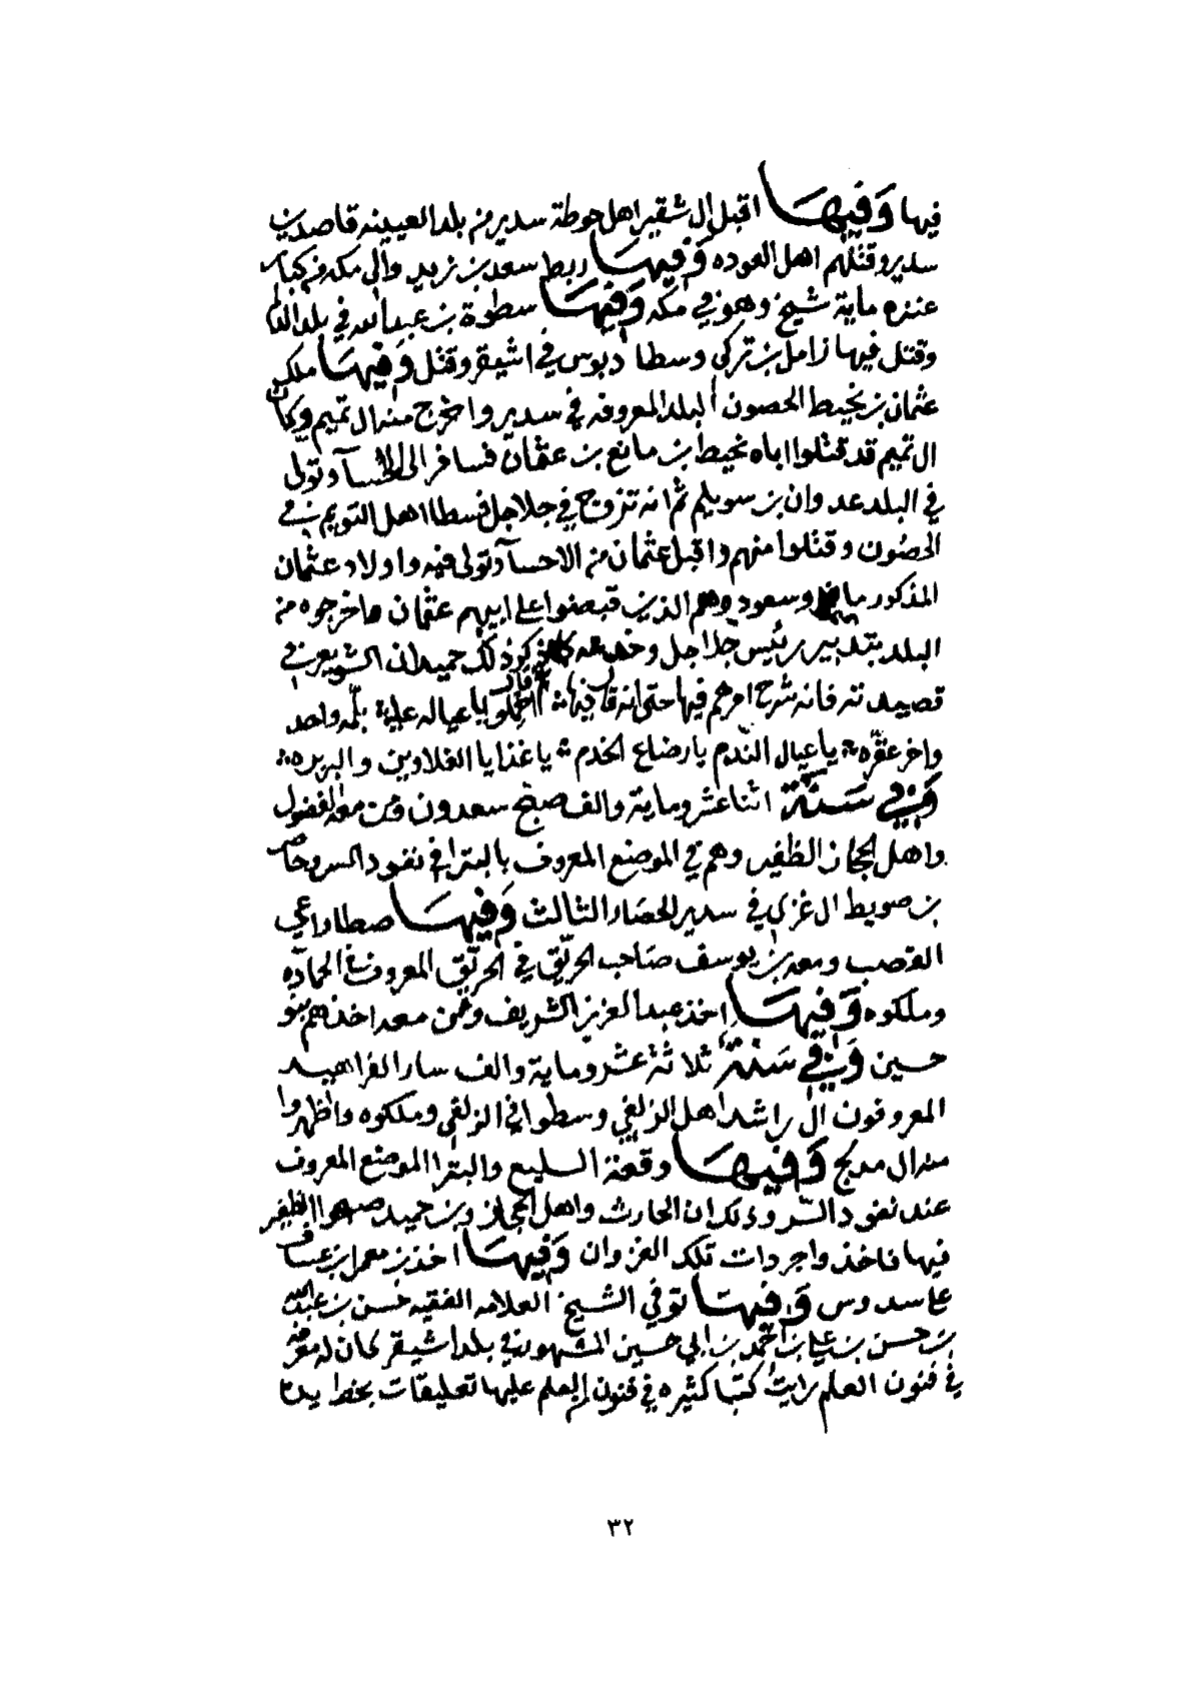 فيها وفيها اقبل ال شقير اهل حوطة سدير من بلد العيينه قاصدين
سدير وقتلهم اهل العوده وفيها ربط سعد بن زيد والي مكه من كبار
عنزه ماية شيخ وهو في مكه وفيها سطوة بن عبدالله في بلد
وقتل فيها زامل بن تركي وسطا دبوس في اشيقر وقتل وفيها ملك
عثمان بن نحيط الحصون البلد المعروفه في سدير واخرج منه ال تميم وكان
ال تميم قد قتلوا اباه نحيط بن مانع بن عثمان فسافر الى الحسآ وتولى
في البلد عدوان بن سويلم ثم انه تزوج في جلاجل فسطا اهل التويم في
الحصون وقتلوا منهم واقبل عثمان من الاحسآ وتولى فيه واولاد عثمان
المذكور مانع وسعود وهم الذين قبضوا على ابيهم عثمان واخرجوه من
البلد بتدبير رئيس جلاجل ذكر ذلك حميدان الشويعر في
قصيدته فانه شرح امرهم فيها حتى انه قال فيها قال يا عياله عليه بلمه واحد
واخر عقره يا عيال الندم يا رضاع الخدم يا غذايا الغلاوين والبربره
وفي سنة اثنا عشر وماية والف صبح سعدون ومن معه الفضول
واهل الحجاز الظفير وهم في الموضع المعروف بالبترا في نفود السر وحاصر
بن صويط ال غزي في سدير الحصار الثالث وفيها سطا راعي
القصب ومعه بن يوسف صاحب الحريق في الحريق المعروف الحماده
وملكوه وفيها اخذ عبدالعزيز الشريف ومن معه اخذهم بنو
حسين وفي سنة ثلاثة عشر وماية والف سار الفراهيد
المعروفون ال راشد اهل الزلفي وسطوا في الزلفي وملكوه واظهروا
منه ال مدلج وفيها وقعة السليع والبترا الموضع المعروف
عند نفود السر وذلك ان الحارث واهل الحجاز وبن حميد صبحوا الظفير
فيها فاخذوا جردات تلك الغزوان وفيها اخذ بن معمر بن عساف
على سدوس وفيها توفي الشيخ العلامه الفقيه حسن بن عبدالله
بن حسن بن علي بن احمد بن ابي حسين المشهور في بلد اشيقر كان له معرفه
في فنون العلم رايت كتبا كثيره في فنون العلم عليها تعليقات بخط يده
٣٢